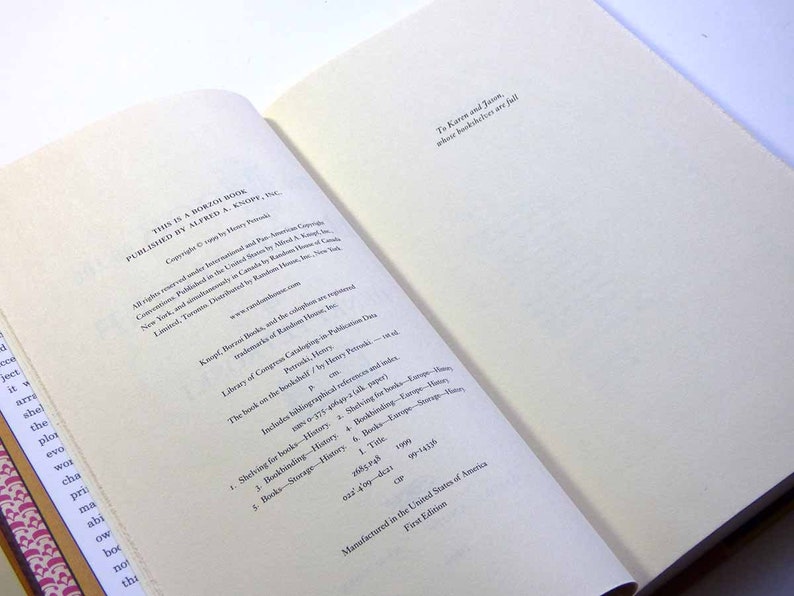 THIS IS A BORZOI BOOK
PUBLISHED BY ALFRED A. KNOPF, INC.
Copyright © 1999 by Henry Petroski
All rights reserved under International and Pan-American Copyright
Conventions. Published in the United States by Alfred A. Knopf, Inc.,
New York, and simultaneously in Canada by Random House of Canada
Limited, Toronto. Distributed by Random House, Inc., New York.
www.randomhouse.com
Knopf, Borzoi Books, and the colophon are registered
trademarks of Random House, Inc.
Library of Congress Cataloging-in-Publication Data
Petroski, Henry.
The book on the bookshelf / by Henry Petroski. — 1st ed.
p. cm.
Includes bibliographical references and index.
ISBN 0-375-40649-2 (alk. paper)
1. Shelving for books—History. 2. Shelving for books—Europe—History.
3. Bookbinding—History. 4. Bookbinding—Europe—History.
5. Books—Storage—History. 6. Books—Europe—Storage—History.
I. Title.
Z685.P48 1999
022'.4'09—dc21 99-14336
CIP
Manufactured in the United States of America
First Edition
To Karen and Jason,
whose bookshelves are full